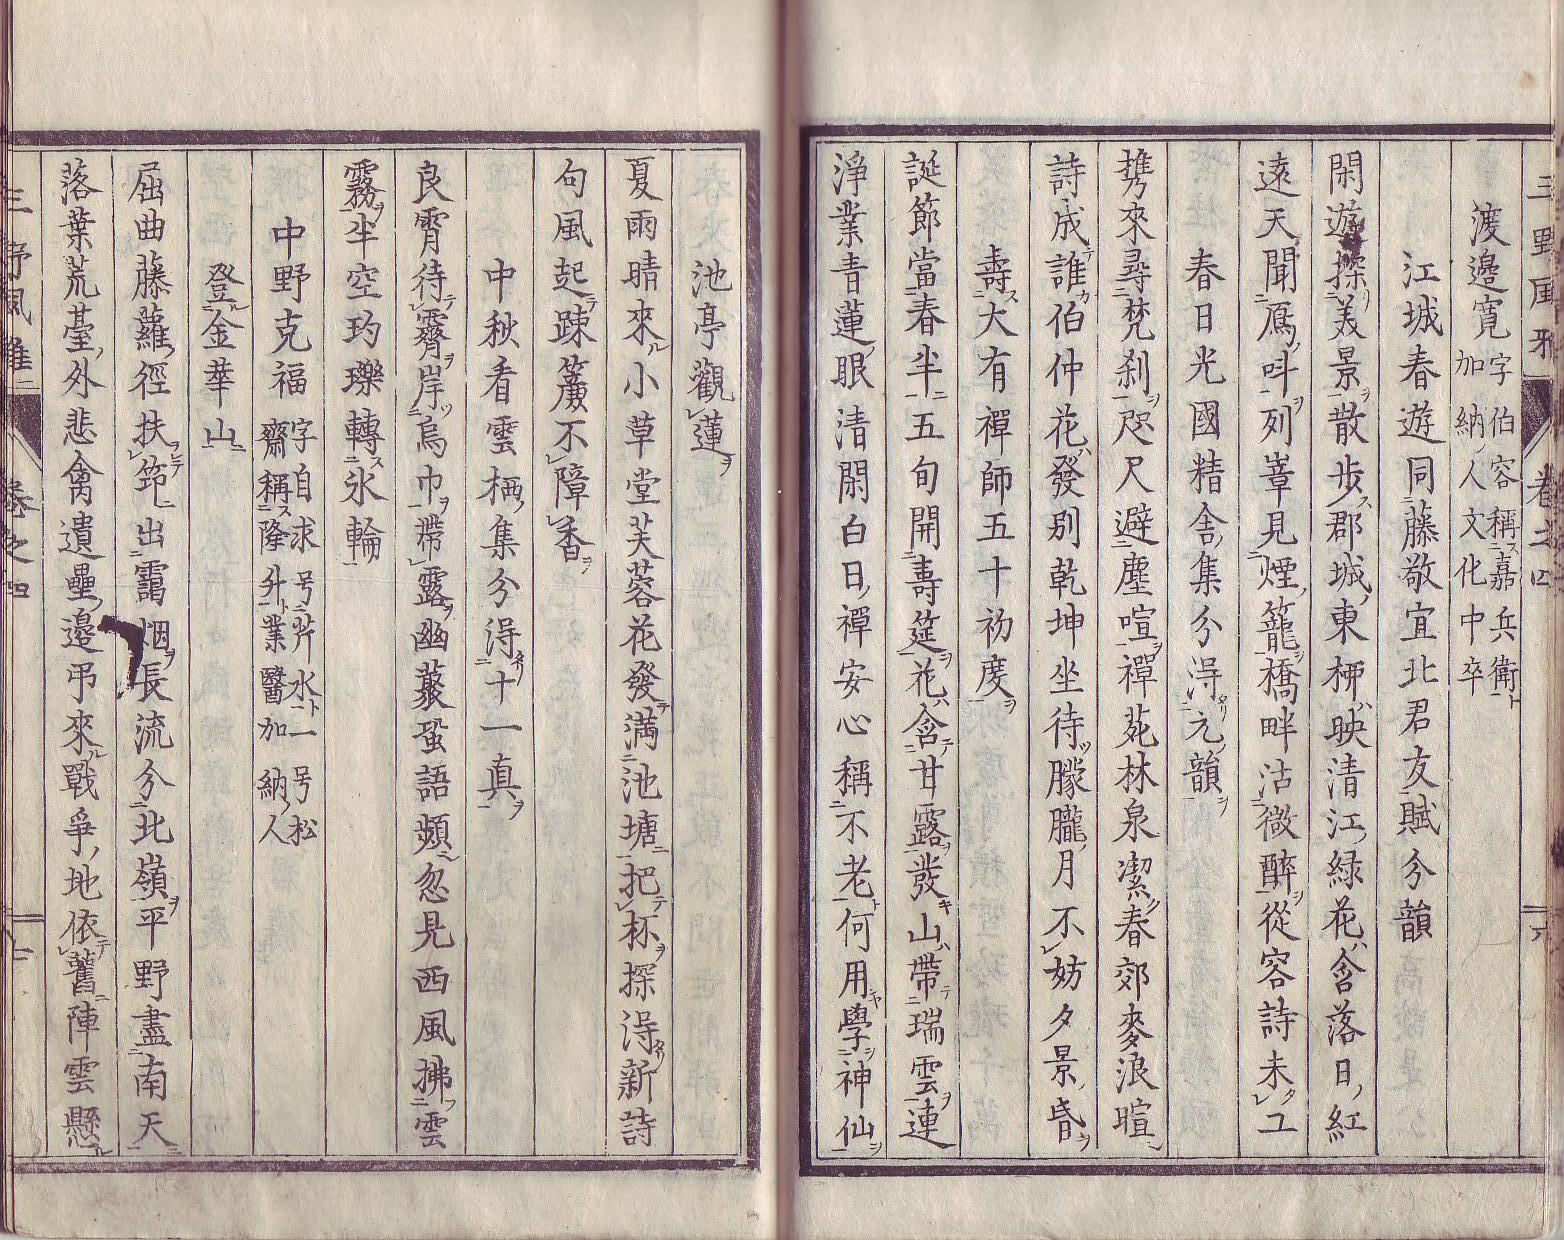 三野風雅
卷之四
六
渡邊寛 字伯容稱嘉兵衛
加納人文化中卒
江城春遊同藤敬宜北君友賦分韻
閑遊探美景散步郡城東柳映清江綠花含落日紅
遠天聞鴈呌列嶂見煙籠橋畔沽微醉從容詩未工
春日光國精舍集分得元韻
携來尋梵刹咫尺避塵喧禪苑林泉潔春郊麥浪暄
詩成誰伯仲花發別乾坤坐待朦朧月不妨夕景昏
壽大有禪師五十初度
誕節當春半五旬開壽筵花含甘露發山帶瑞雲連
淨業青蓮眼清閑白日禪安心稱不老何用學神仙
池亭觀蓮
夏雨晴來小草堂芙蓉花發滿池塘把杯探得新詩
句風起疎簾不障香
中秋看雲栖集分得十一真
良霄待霽岸烏巾帶露幽藂蛩語頻忽見西風拂雲
霧半空玓瓅轉氷輪
中野克福 字自求号芹水一号松
齋稱隆升業醫加納人
登金華山
屈曲藤蘿徑扶筇出靄烟長流分北嶺平野盡南天
落葉荒臺外悲禽遺壘邊弔來戰爭地依舊陣雲懸
三野風雅二
卷之四
七